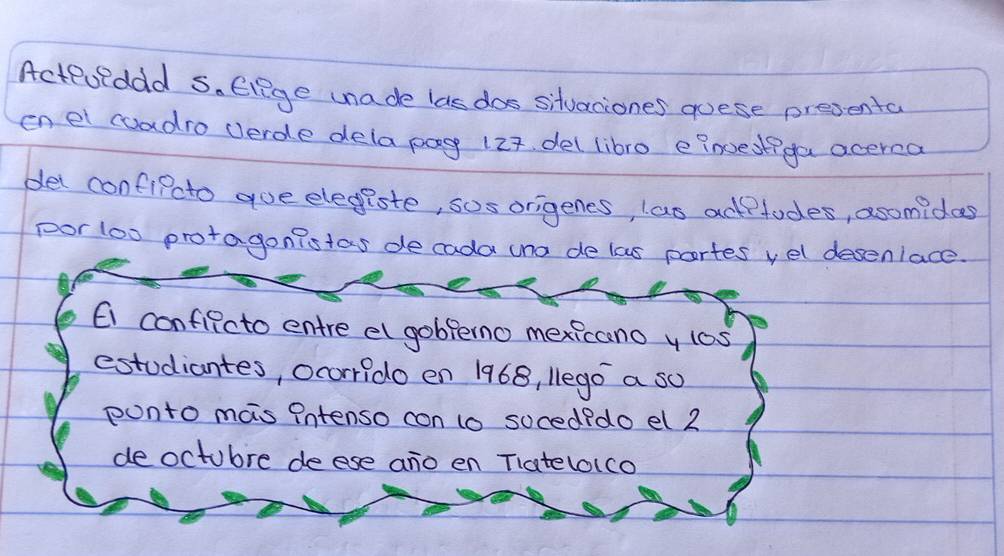 Actividad 5. Elige una de las dos situaciones que se presenta
en el cuadro verde de la pag 127. del libro e investiga acerca
del conflicto que elegiste, sus orígenes, las actitudes, asomidas
por los protagonistas de cada una de las partes y el desenlace.
El conflicto entre el gobierno mexicano y los
estudiantes, ocorrido en 1968, llegó a su
punto más intenso con lo sucedido el 2
de octubre de ese año en Tlatelolco